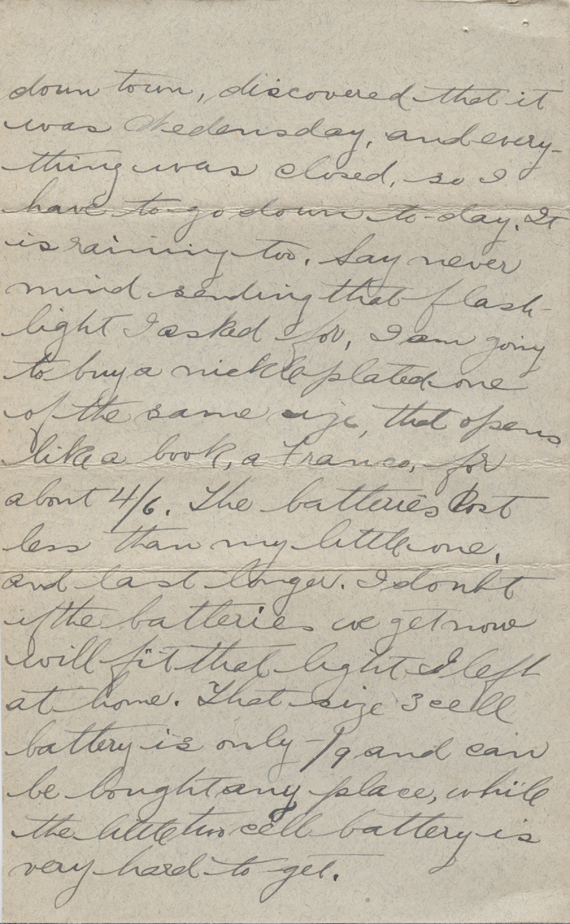 down town, discovered that it
was Wedensday, and every-
thing was closed, so I
have to go down to-day. It
is raining too. Say never
mind sending that flash-
light I asked for, I am going
to buy a nickle plated one
of the same size, that opens
like a book, a Franco, for
about 4/6. The batteries cost
less than my little one,
and last longer. I doubt
if the batteries we get now
will fit that light I left
at home. That size 3 cell
battery is only -/9 and can
be bought any place, while
the little two cell battery is
very hard to get.